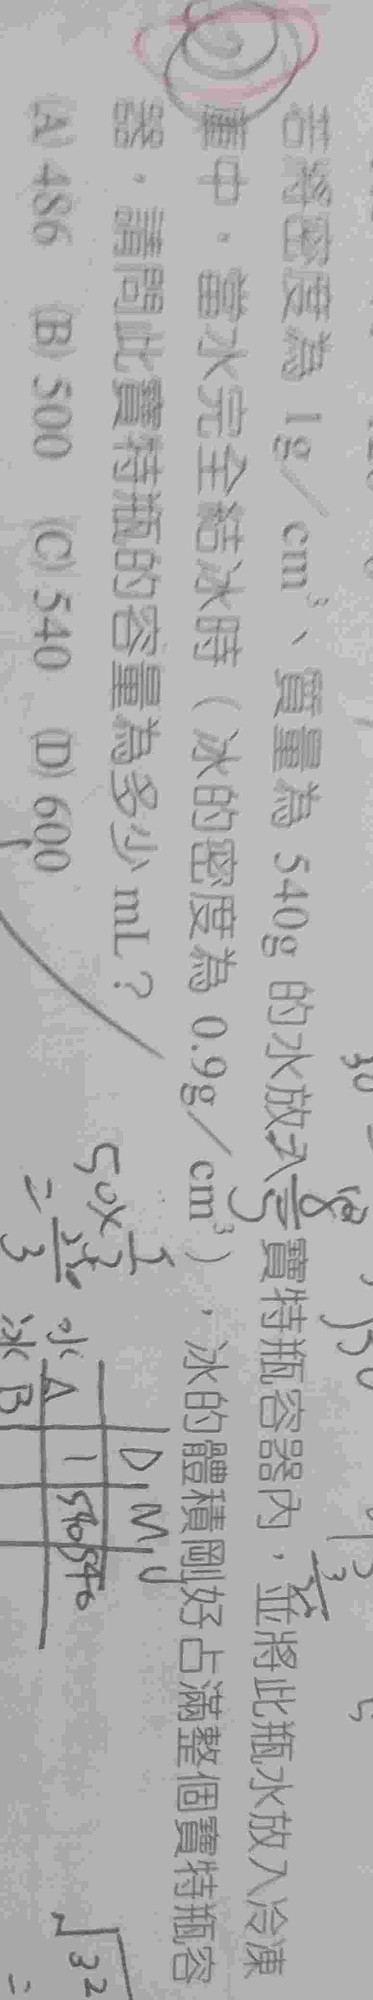 若將密度為 1g/cm³、質量為 540g 的水放入寶特瓶容器內，並將此瓶水放入冷凍
庫中，當水完全結冰時（冰的密度為 0.9g/cm³），冰的體積剛好占滿整個寶特瓶容
器，請問此寶特瓶的容量為多少 mL？
(A) 486 (B) 500 (C) 540 (D) 600
D M V
水 A 1 540 540
冰 B